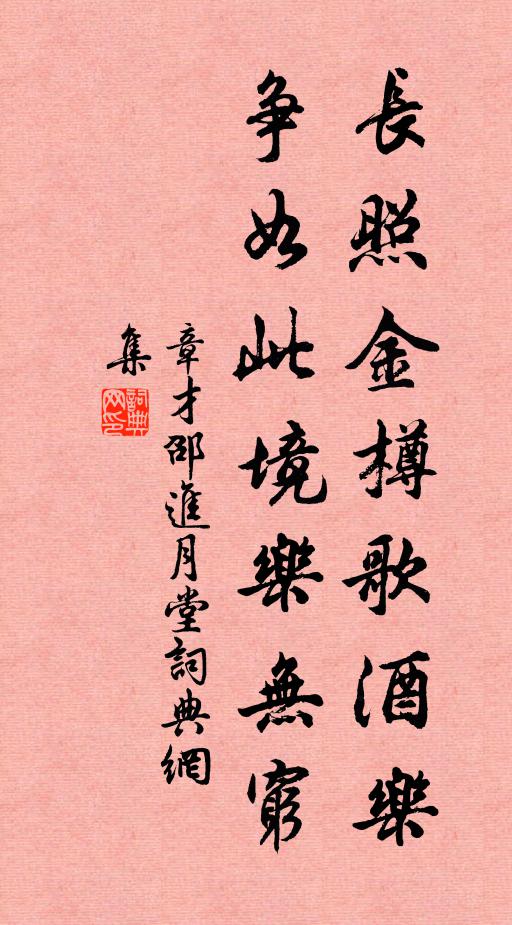 長照金樽歌酒樂
争如此境樂無窮
章才邵進月堂詞典網
集
詞典
网印